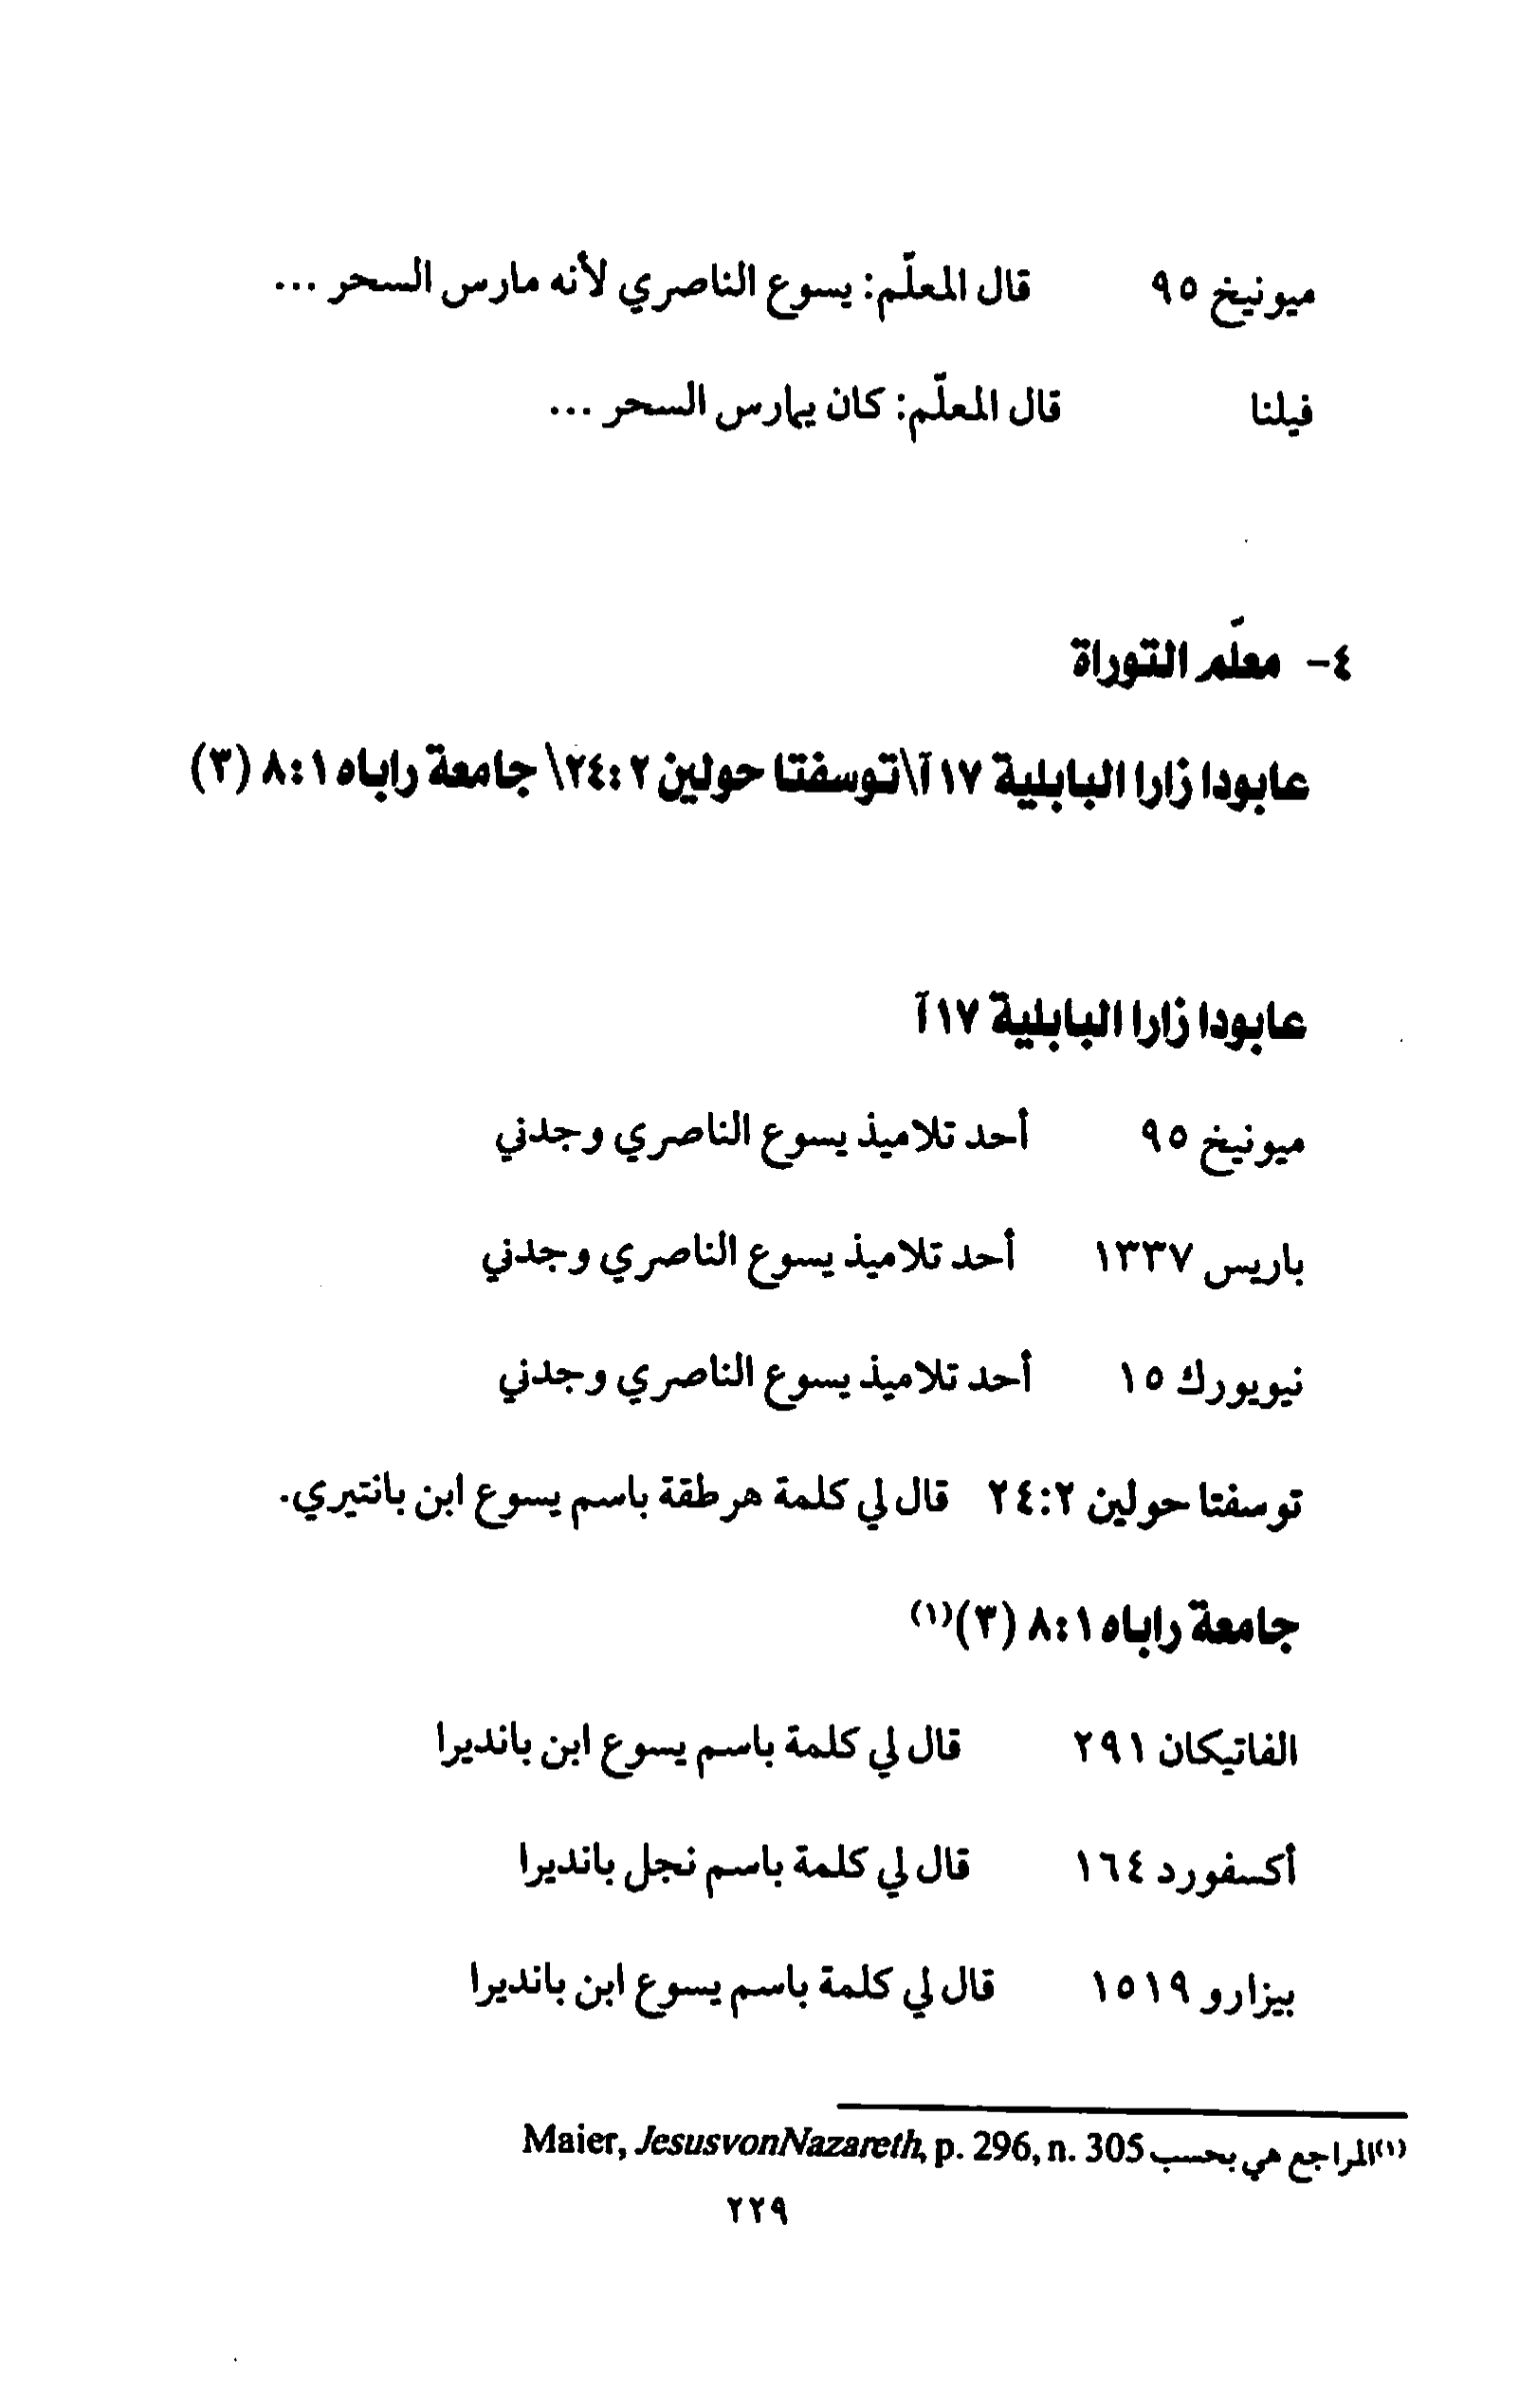 ميونيخ ٩٥ قال المعلّم: يسوع الناصري لأنه مارس السحر ...
فيلنا قال المعلّم: كان يمارس السحر ...
٤- معلّم التوراة
عابودا زارا البابلية ١٧ آ\توسفتا حولين ٢ :٢٤\ جامعة راباه ٨:١ (٣)
عابودا زارا البابلية ١٧ آ
ميونيخ ٩٥ أحد تلاميذ يسوع الناصري وجدني
باريس ١٣٣٧ أحد تلاميذ يسوع الناصري وجدني
نيويورك ١٥ أحد تلاميذ يسوع الناصري وجدني
توسفتا حولين ٢٤:٢ قال لي كلمة هرطقة باسم يسوع ابن بانتيري.
جامعة راباه ٨:١ (٣)(١)
الفاتيكان ٢٩١ قال لي كلمة باسم يسوع ابن بانديرا
أكسفورد ١٦٤ قال لي كلمة باسم نجل بانديرا
بيزارو ١٥١٩ قال لي كلمة باسم يسوع ابن بانديرا
(١)المراجع هي بحسب Maier, JesusvonNazareth, p. 296, n. 305
٢٢٩